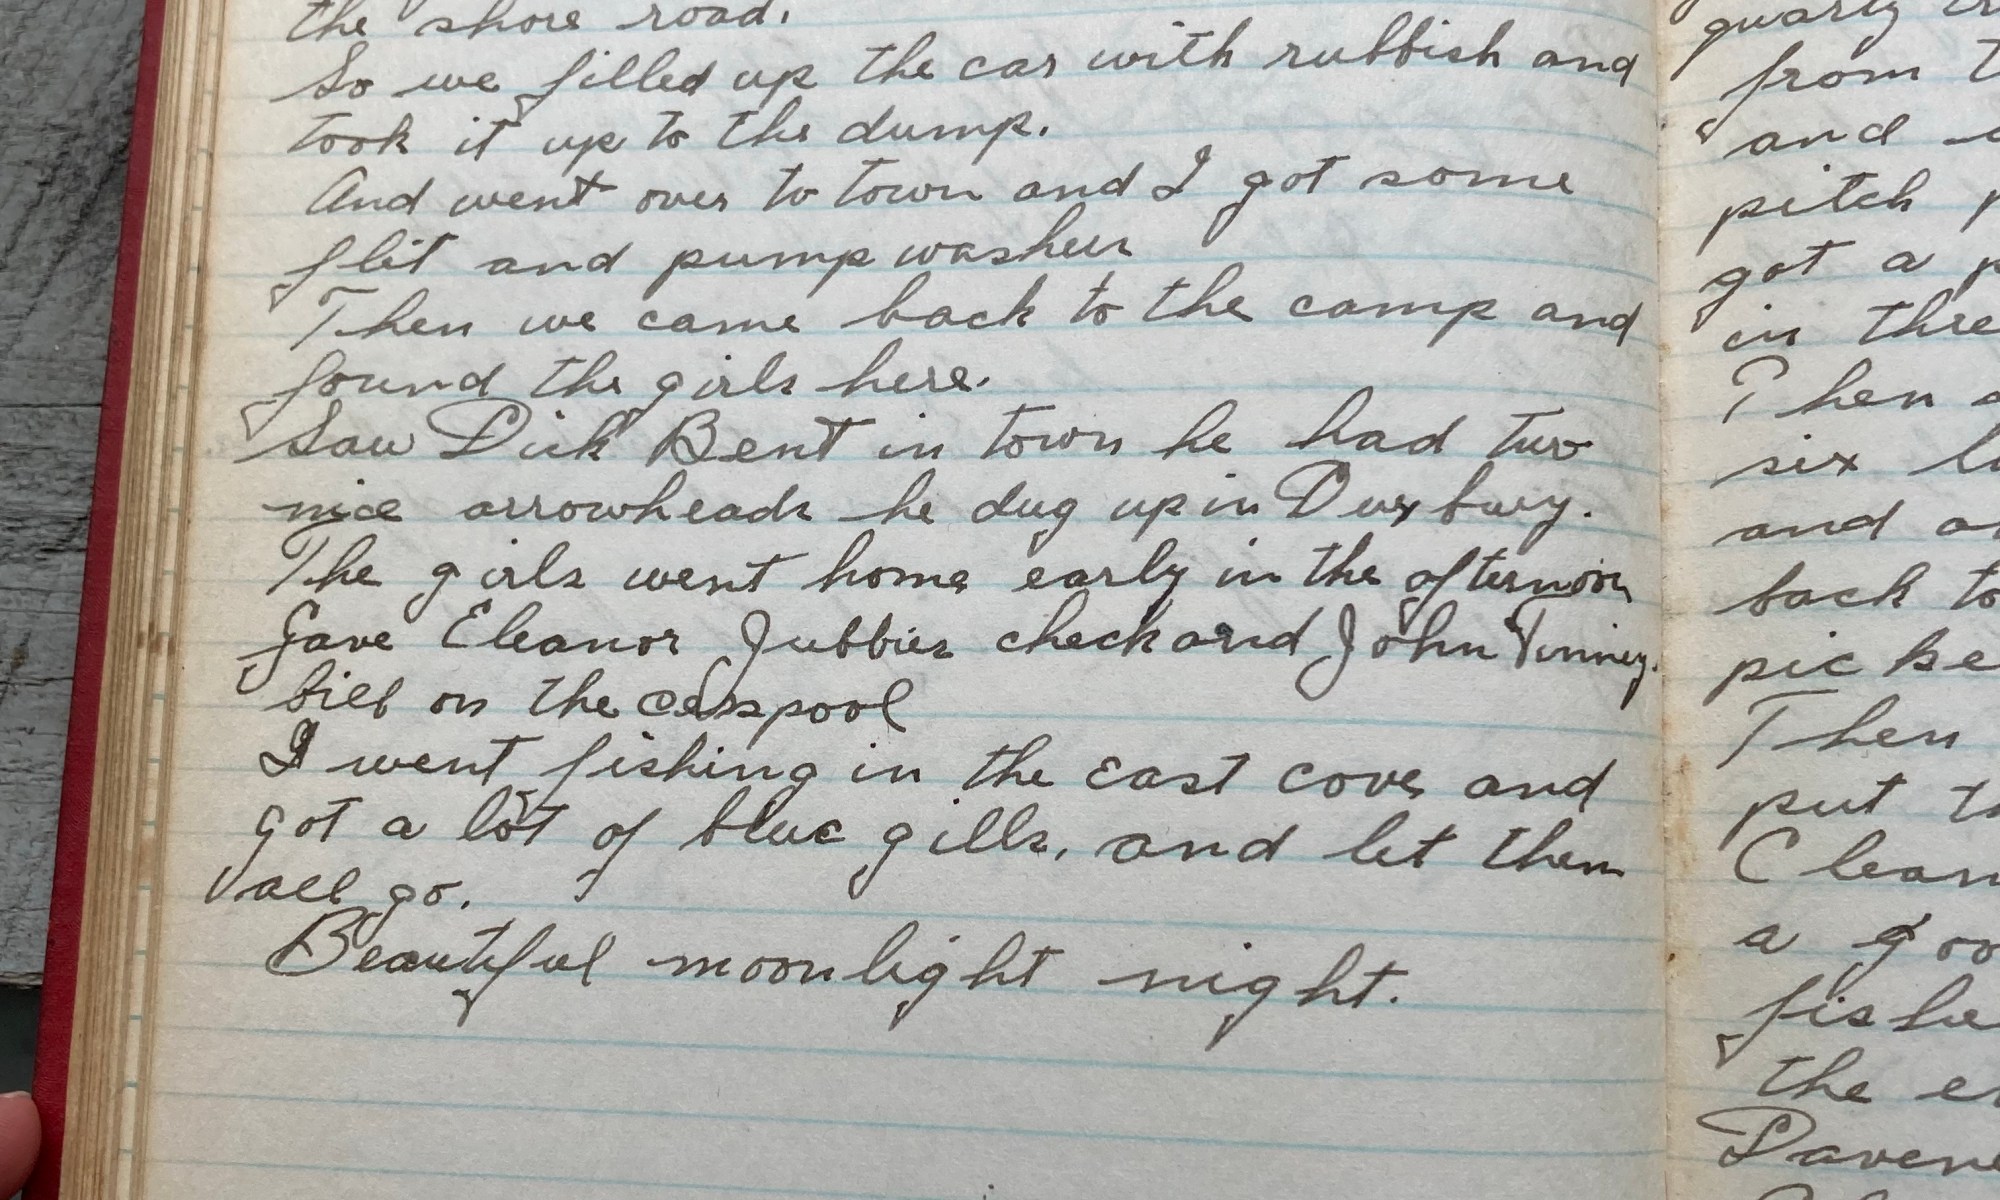 the shore road.
So we filled up the car with rubbish and
took it up to the dump.
And went over to town and I got some
flit and pump washer
Then we came back to the camp and
found the girls here.
Saw Dick Bent in town he had two
nice arrowheads he dug up in Duxbury.
The girls went home early in the afternoon
Gave Eleanor Jubbies check and John Tinney.
bill on the cesspool
I went fishing in the east cove and
got a lot of blue gills, and let them
all go.
Beautiful moonlight night.
from
and
pitch
got a
in three
Then
six
and
back to
Then
put
a
the